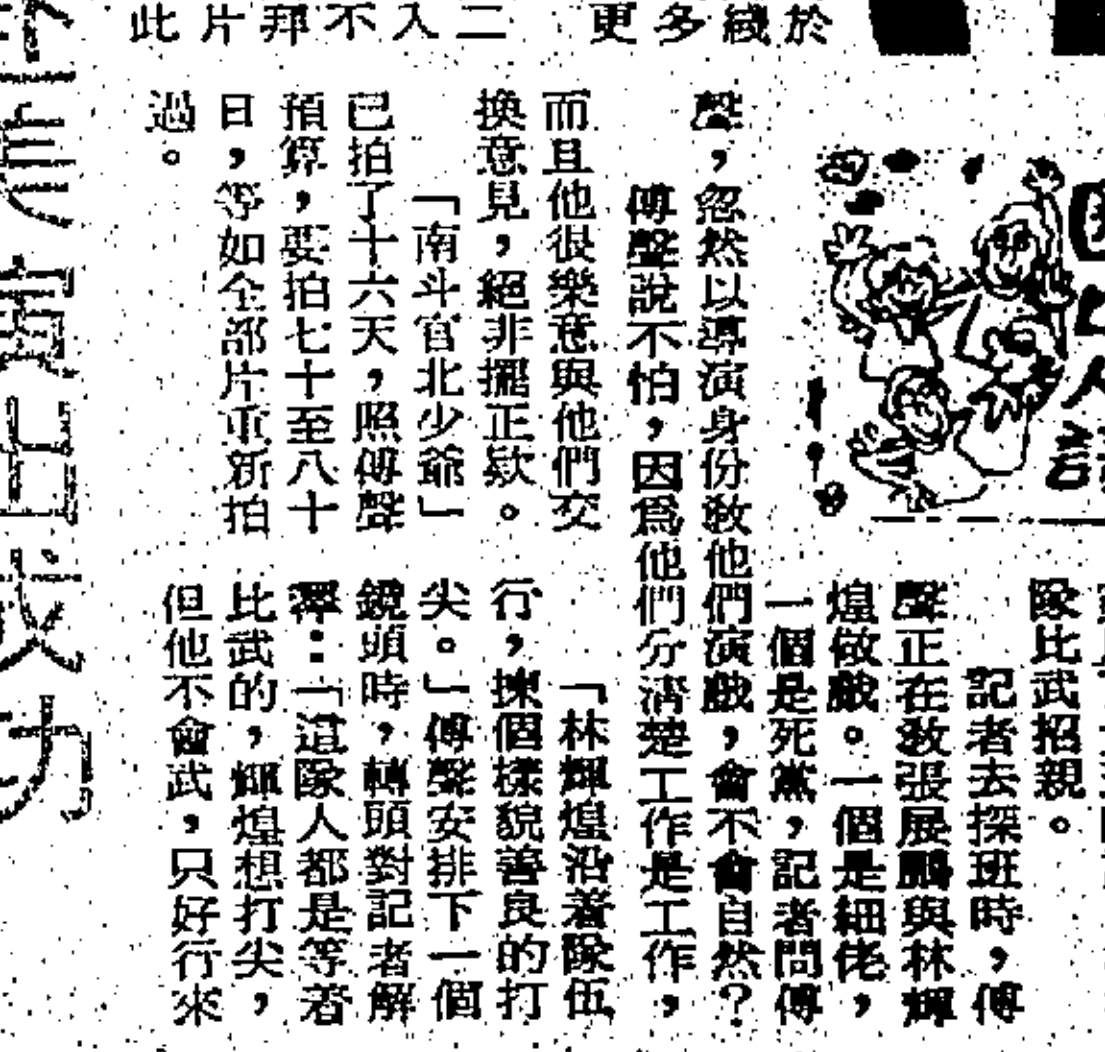 於
綫
多
更
二
入
不
拜
片
此
隊比武招親。
記者去探班時，傅
聲正在教張展鵬與林輝
煌做戲。一個是細佬，
一個是死黨，記者問傅
聲，忽然以導演身份教他們演戲，會不會自然？
傅聲說不怕，因爲他們分清楚工作是工作，
而且他很樂意與他們交
換意見，絕非擺正欵。
「南斗官北少爺」
已拍了十六天，照傅聲
預算，要拍七十至八十
日，等如全部片重新拍
過。
「林輝煌沿着隊伍
行，揀個樣貌善良的打
尖。」傅聲安排下一個
鏡頭時，轉頭對記者解
釋：「這隊人都是等着
比武的，輝煌想打尖，
但他不會武，只好行來